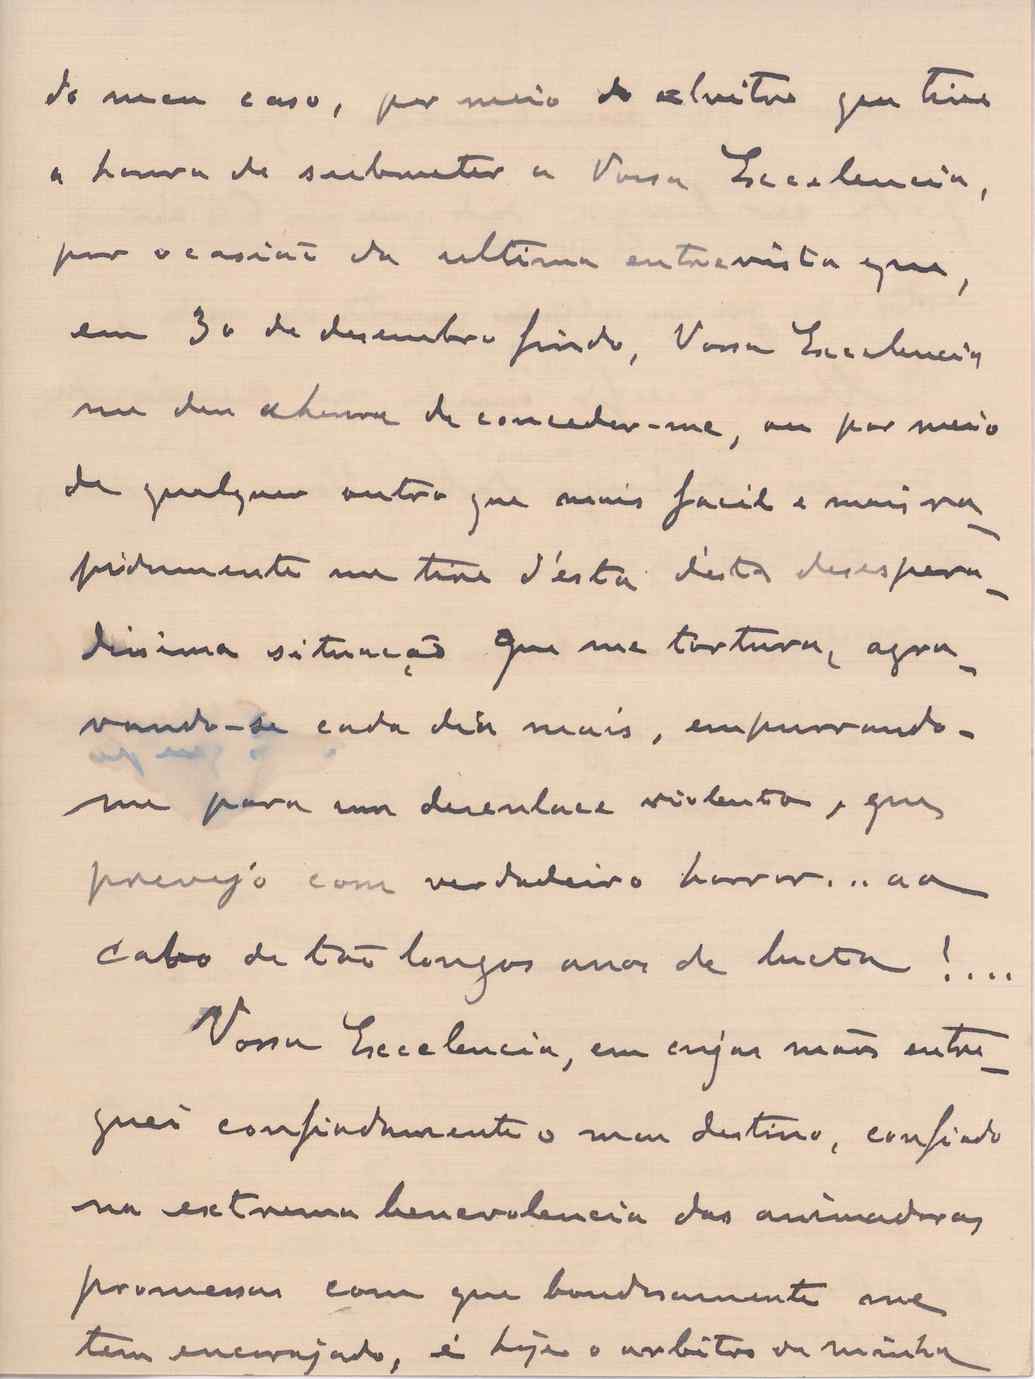 do meu caso, por meio do alvitre que tive
a honra de submeter a Vossa Excelencia,
por ocasião da ultima entrevista que,
em 30 de desembro findo, Vossa Excelencia
me deu a honra de conceder-me, ou por meio
de qualquer outro que mais facil e mais ra-
pidamente me tire d'ésta désta desespera-
dissima situação que me tortura, agra-
vando-se cada dia mais, empurrando-
me para um desenlace violento, que
prevejo com verdadeiro horror... ao
cabo de tão longos anos de lucta!....
Vossa Excelencia, em cujas mãos entre-
guei confiadamente o meu destino, confiado
na extrema benevolencia das animadoras
promessas com que bondosamente me
tem encorajado, é hoje o arbitro da minha